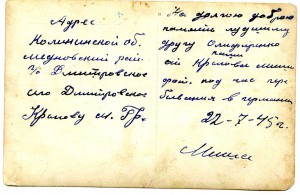 Адрес
Калининской об.
Медновский рай
п/о Дмитровское
село Дмитровское
Крылову М. Гр.
На долгую добрую
память лучшему
другу Омельченко
от Крылова Миши
под час пре
бывания в германии
22-7-45 г.
Миша